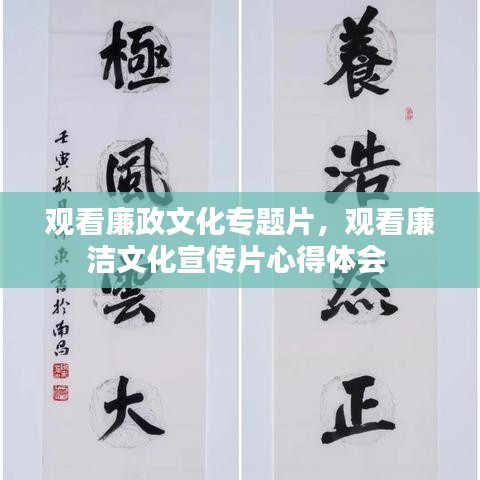 養浩然正
極風雲大
壬寅秋
東書於南昌
观看廉政文化专题片，观看廉
洁文化宣传片心得体会